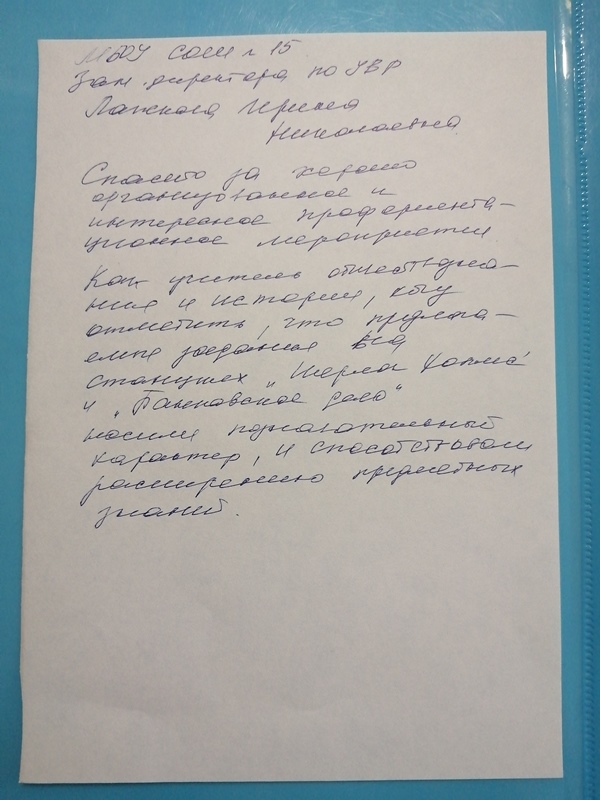 МБОУ СОШ № 15
Зам. директора по УВР
Ирина
Николаевна
Спасибо за хорошо
организованное и
интересное профориента-
ционное мероприятие
Как учитель обществозна-
ния и истории, хочу
отметить, что предлага-
емые задания на
станциях „Шерлок Холмс“
и „Банковское дело“
носили познавательный
характер, и способствовали
расширению предметных
знаний.